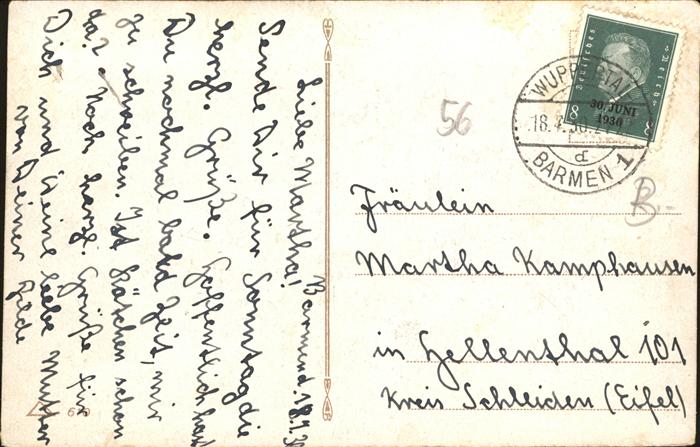 Barmen d. 18.7.30
Liebe Martha!
Sende Dir für Sonntag die
herzl. Grüße. Hoffentlich hast
Du nochmal bald Zeit, mir
zu schreiben. Ist Käthchen schon
da? Noch herzl. Grüße für
Dich und Deine liebe Mutter
von Deiner Hilde
56
Deutsches Reich
8 8
30. JUNI
1930
WUPPERTAL
18.7.30.
BARMEN 1
B-
Fräulein
Martha Kamphausen
in Hellenthal 101
Kreis Schleiden (Eifel)